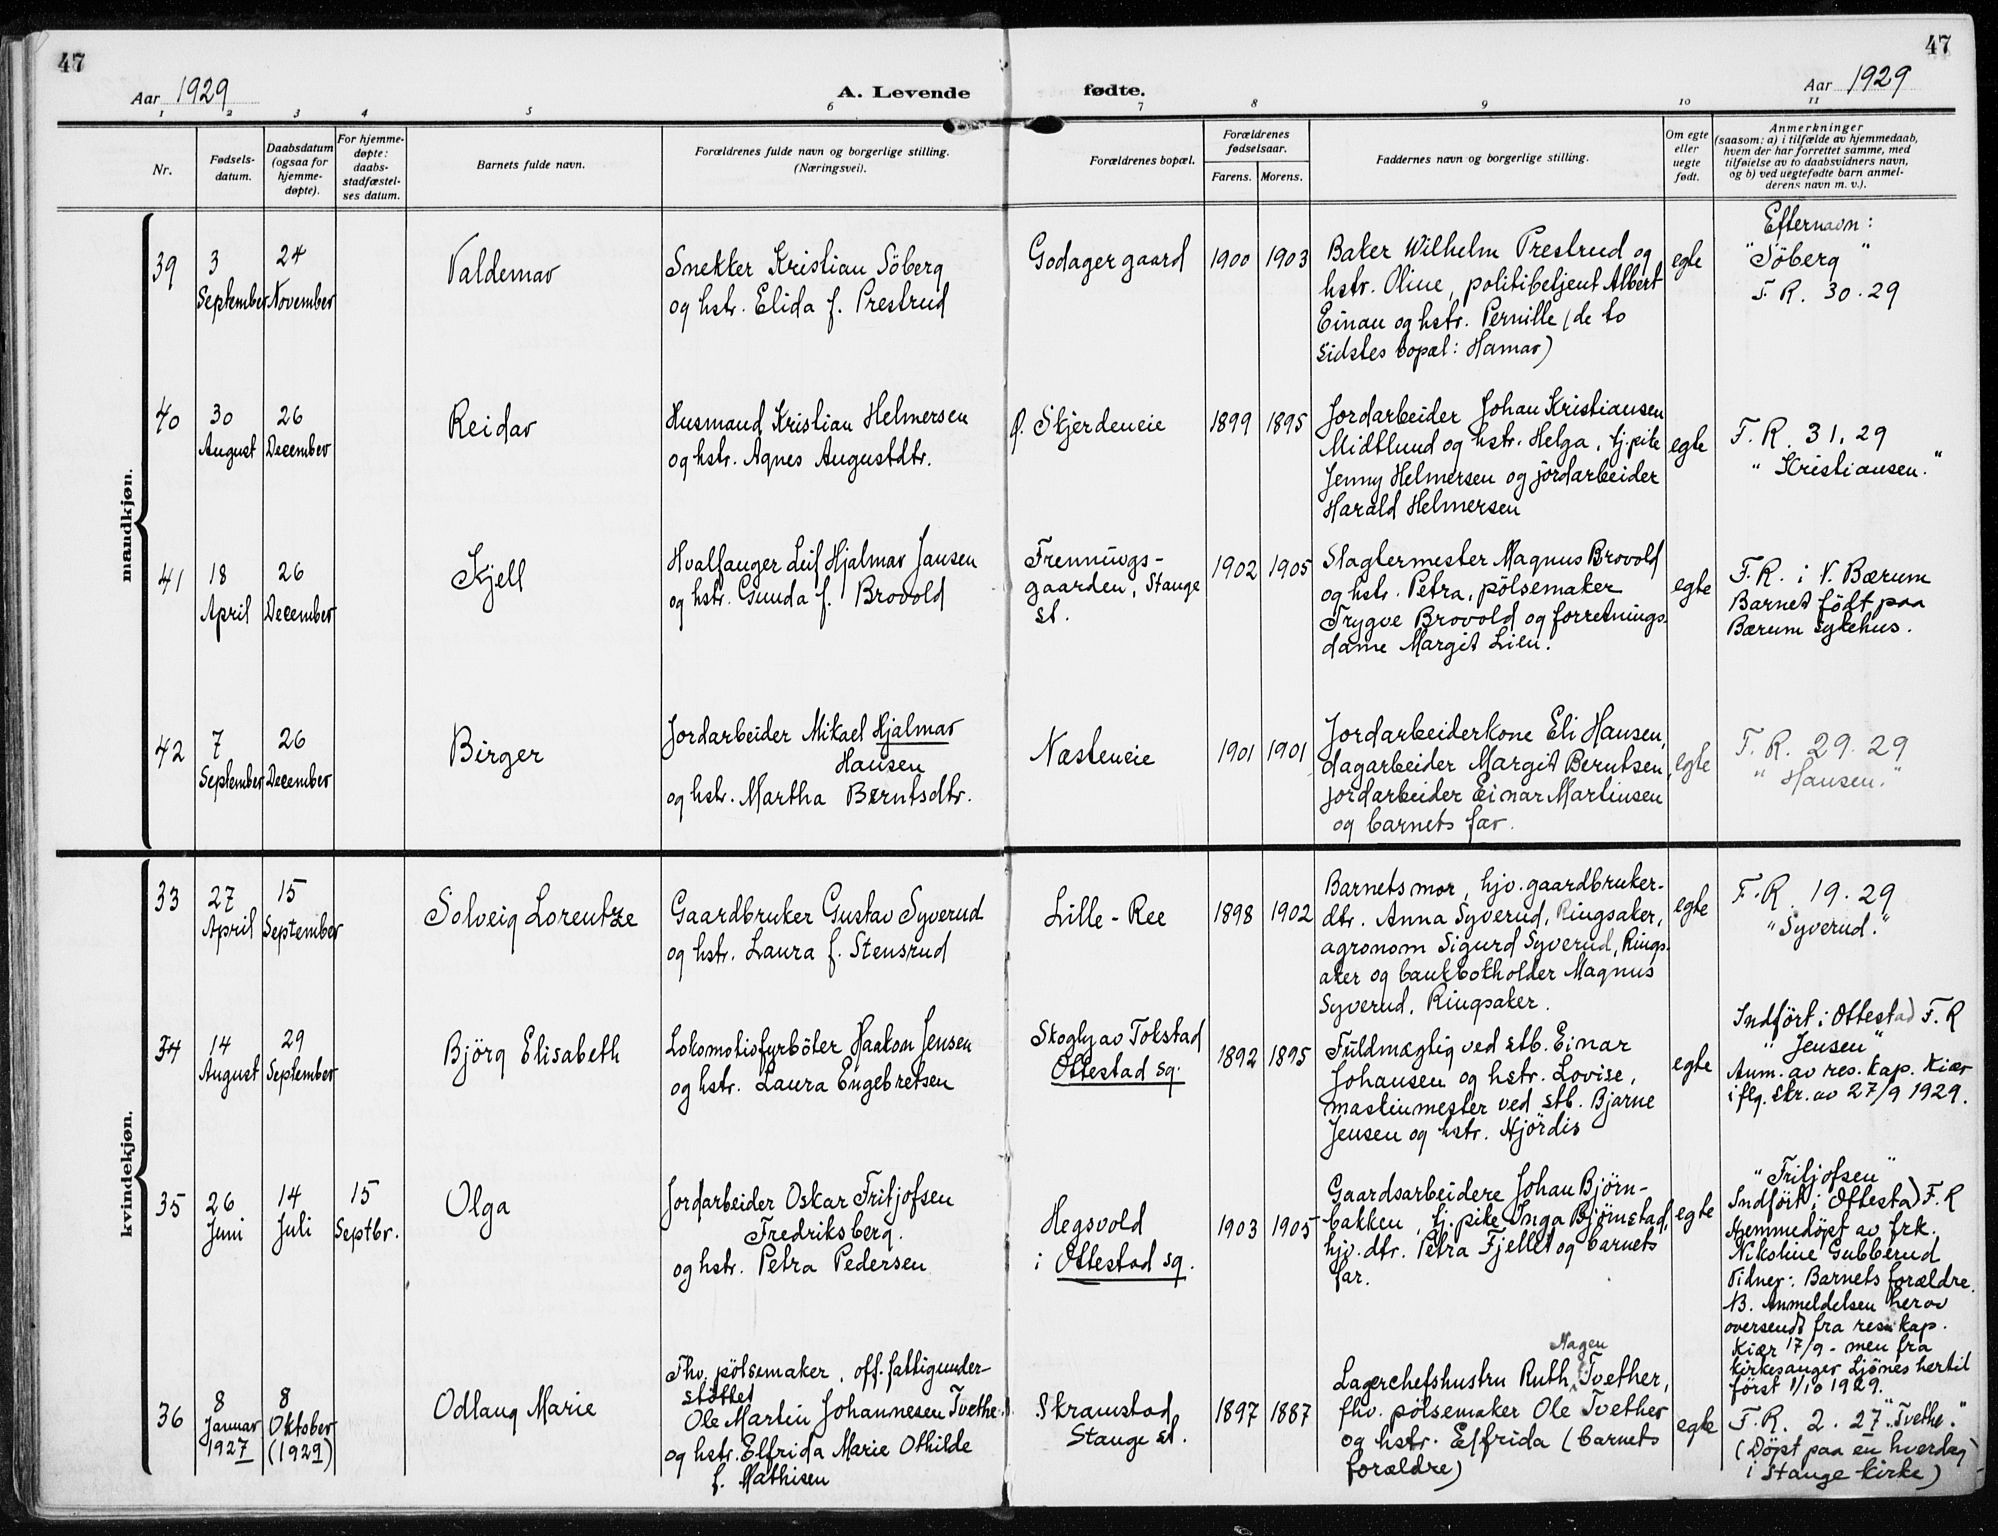 47
47
Aar 1929
A. Levende
fødte.
Aar 1929
1 2 3 4 5 6 7 8 9 10 11
Nr.
Fødsels-
datum.
Daabsdatum
(ogsaa for
hjemme-
døpte).
For hjemme-
døpte:
daabs-
stadfæstel-
ses datum.
Barnets fulde navn.
Forældrenes fulde navn og borgerlige stilling.
(Næringsvei).
Forældrenes bopæl.
Forældrenes
fødselsaar.
Farens. Morens.
Faddernes navn og borgerlig stilling.
Om egte
eller
uegte
født.
Anmerkninger
(saasom: a) i tilfælde av hjemmedaab,
hvem der har forrettet samme, med
tilføielse av to daabsvidners navn,
og b) ved uegtefødte barn anmel-
derens navn m. v.).
mandkjøn.
39
3
September
24
November
Valdemar
Snekker Kristian Söberg
og hstr. Elida f. Prestrud
Godager gaard
1900 1903
Baker Wilhelm Prestrud og
hstr. Oline, politibetjent Albert
Einan og hstr. Pernille (de to
sidstes bopæl: Hamar)
egte
Efternavn:
"Söberg"
F. R. 30. 29
40
30
August
26
December
Reidar
Husmand Kristian Helmersen
og hstr. Agnes Augustdtr.
p. Skjerdeneie
1899 1895
Jordarbeider Johan Kristiansen
Midtlund og hstr. Helga, tj.pike
Jenny Helmersen og jordarbeider
Harald Helmersen
egte
F. R. 31. 29
"Kristiansen."
41
18
April
26
December
Kjell
Hvalfanger Leif Hjalmar Jansen
og hstr. Gunda f. Brovold
Frennings-
gaarden, Stange
st.
1902 1905
Slagtermester Magnus Brovold
og hstr. Petra, pölsemaker
Trygve Brovold og forretnings-
dame Margit Lien.
egte
F. R. i V. Bærum
Barnet födt paa
Bærum sykehus.
42
7
September
26
December
Birger
Jordarbeider Mikael Hjalmar
Hansen
og hstr. Martha Berntsdtr.
Næsteneie
1901 1901
Jordarbeiderkone Eli Hansen,
dagarbeider Margit Berntsen,
jordarbeider Einar Martinsen
og barnets far.
egte
F. R. 29. 29
"Hansen."
kvindekjøn.
33
27
April
15
September
Solveig Lorentze
Gaardbruker Gustav Syverud
og hstr. Laura f. Stensrud
Lille-Ree
1898 1902
Barnets mor, hjv. gaardbruker-
dtr. Anna Syverud, Ringsaker,
agronom Sigurd Syverud, Rings-
aker og bankbokholder Magnus
Syverud, Ringsaker.
egte
F. R. 19. 29
"Syverud."
34
14
August
29
September
Björg Elisabeth
Lokomotivfyrböter Haakon Jensen
og hstr. Laura Engebretsen
Skogly av Tokstad
Ottestad sg.
1892 1895
Fuldmægtig ved stb. Einar
Johansen og hstr. Lovise,
maskinmester ved stb. Bjarne
Jensen og hstr. Hjördis
egte
Indfört i Ottestad F. R
"Jensen"
Anm. av res. kap. Kiær
iflg. skr. av 27/9 1929.
35
26
Juni
14
Juli
15
Septbr.
Olga
Jordarbeider Oskar Fritjofsen
Fredriksberg.
og hstr. Petra Pedersen
Hegsvold
i Ottestad sg.
1903 1905
Gaardsarbeidere Johan Bjørn-
bakken, tj. pike Inga Bjørnstad,
hjv. dtr. Petra Fjellet og barnets
far.
egte
"Fritjofsen"
Indfört i Ottestad F. R
Hjemmedöpt av frk.
Nikoline Gubberud
Vidner: Barnets forældre.
N. Anmeldelsen herav
oversendt fra res. kap.
Kiær 17/9 - men fra
kirkesanger Ljönes hertil
först 1/10 1929.
36
8
Januar
1927
8
Oktober
(1929)
Odlaug Marie
Fhv. pölsemaker, off. fattigunder-
stöttet
Ole Martin Johannesen Tvethe
og hstr. Elfrida Marie Othilde
f. Mathisen
Skramstad
Stange st.
1897 1887
Lagerchefshustru Ruth Hagen Tvether,
fhv. pölsemaker Ole Tvether
og hstr. Elfrida (barnets
forældre)
egte
F. R. 2. 27 "Tvethe."
(Döpt paa en hverdag
i Stange kirke)